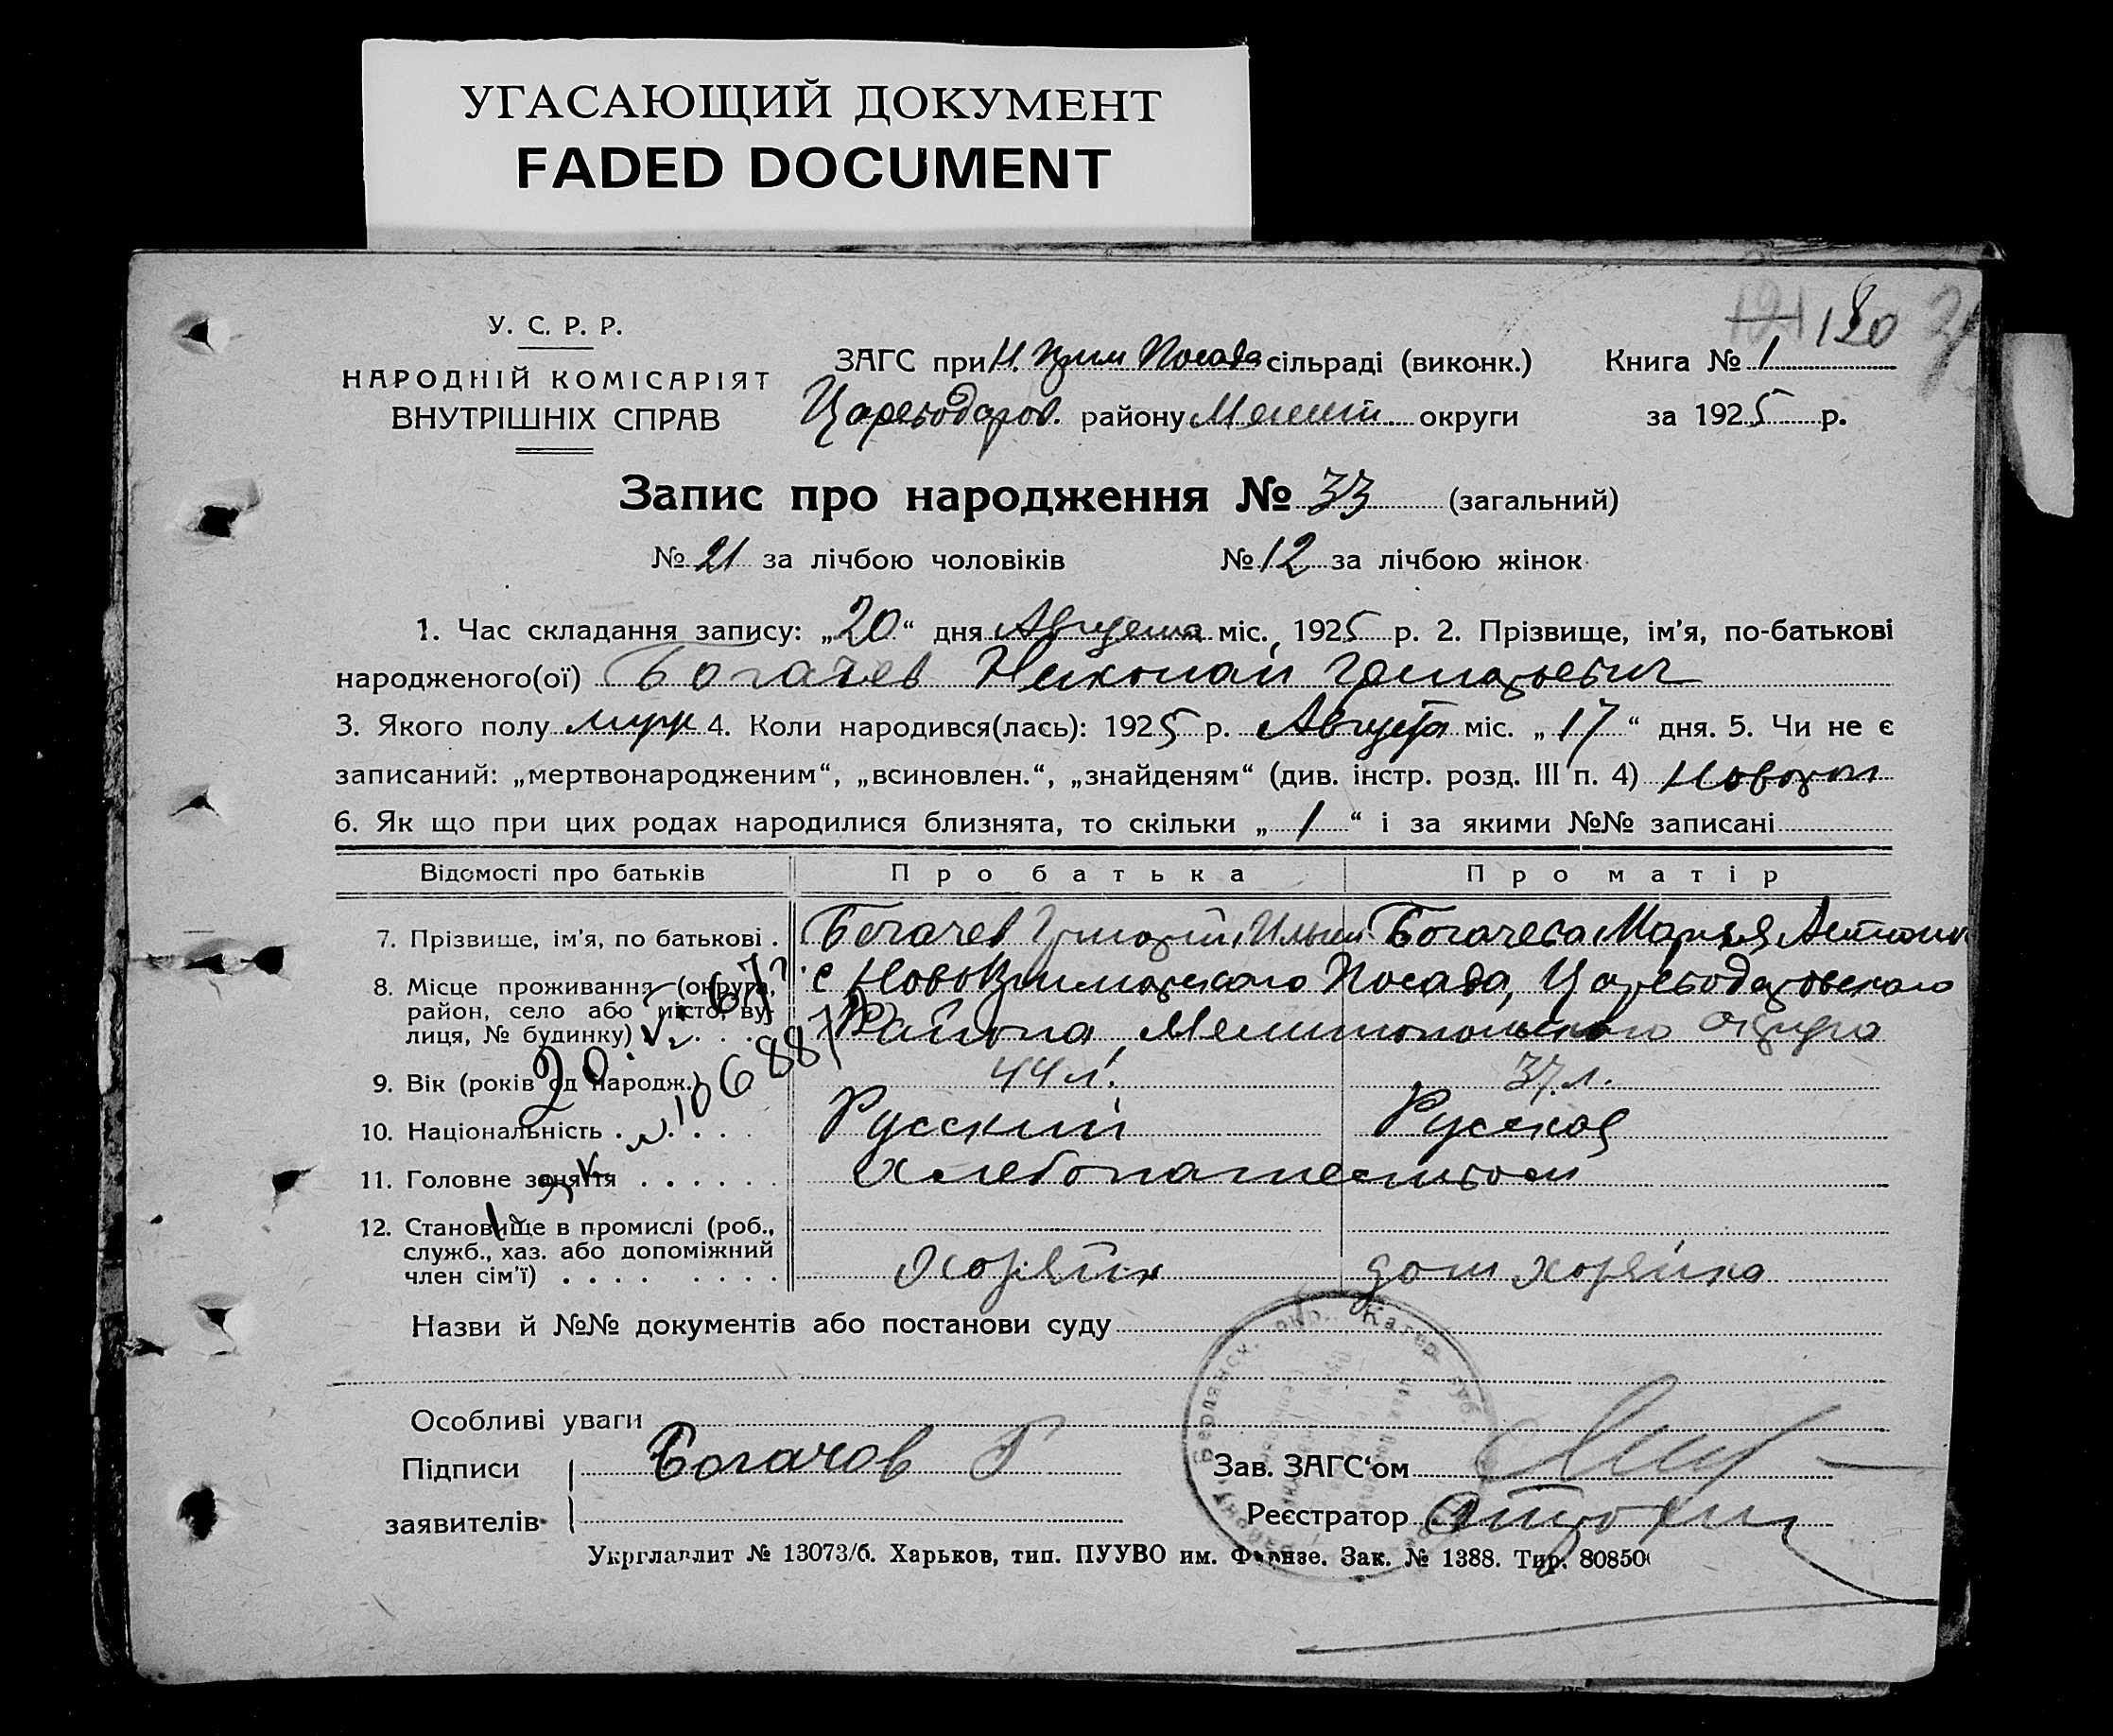 УГАСАЮЩИЙ ДОКУМЕНТ
FADED DOCUMENT
121 120
У. С. Р. Р.
НАРОДНІЙ КОМІСАРІЯТ
ВНУТРІШНІХ СПРАВ
ЗАГС при Н. Прим Посада сільраді (виконк.) Книга № 1
Цареводаров. району Мелит. округи за 1925 р.
Запис про народження № 33 (загальний)
№ 21 за лічбою чоловіків № 12 за лічбою жінок
1. Час складання запису: „20“ дня Августа міс., 1925 р. 2. Прізвище, ім'я, по-батькові
народженого(ої) Богачев Николай Григорьевич
3. Якого полу муж 4. Коли народився(лась): 1925 р. Августа міс. „17“ дня. 5. Чи не є
записаний: „мертвонародженим“, „всиновлен.“, „знайденям“ (див. інстр. розд. III п. 4) Новорож
6. Як що при цих родах народилися близнята, то скільки „1“ і за якими №№ записані
Відомості про батьків Про батька Про матір
7. Прізвище, ім'я, по батькові . Богачев Григорій Ильич Богачева Мария Антонов
8. Місце проживання (округа, с НовоПриморского Посада, Цареводаровского
район, село або місто, ву-
лиця, № будинку) . . . . Района, Мелитопольского Округа
9. Вік (років од народж.) 44 л. 37 л.
10. Національність . . . . . Русский Русская
11. Головне заняття . . . . . . Хлебопашеством
12. Становище в промислі (роб.,
служб., хаз. або допоміжний
член сім'ї) . . . . . . . . Хозяин дом хозяйка
Назви й №№ документів або постанови суду
Особливі уваги
Підписи Богачов Г Зав. ЗАГС‘ом
заявителів Реєстратор
Укрглавлит № 13073/б. Харьков, тип. ПУУВО им. Фрунзе. Зак. № 1388. Тир. 80850